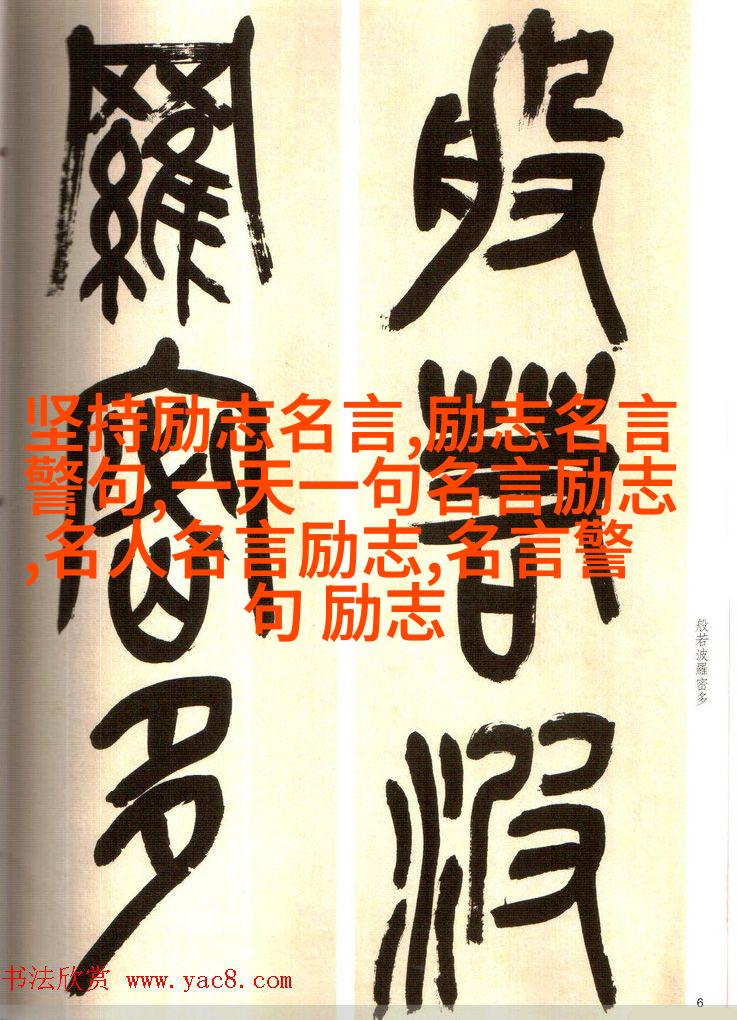 般若波
羅密多
坚持励志名言,励志名言
警句,一天一句名言励志
,名人名言励志,名言警
句 励志
般若波羅密多
书法欣赏 www.yac8.com
6